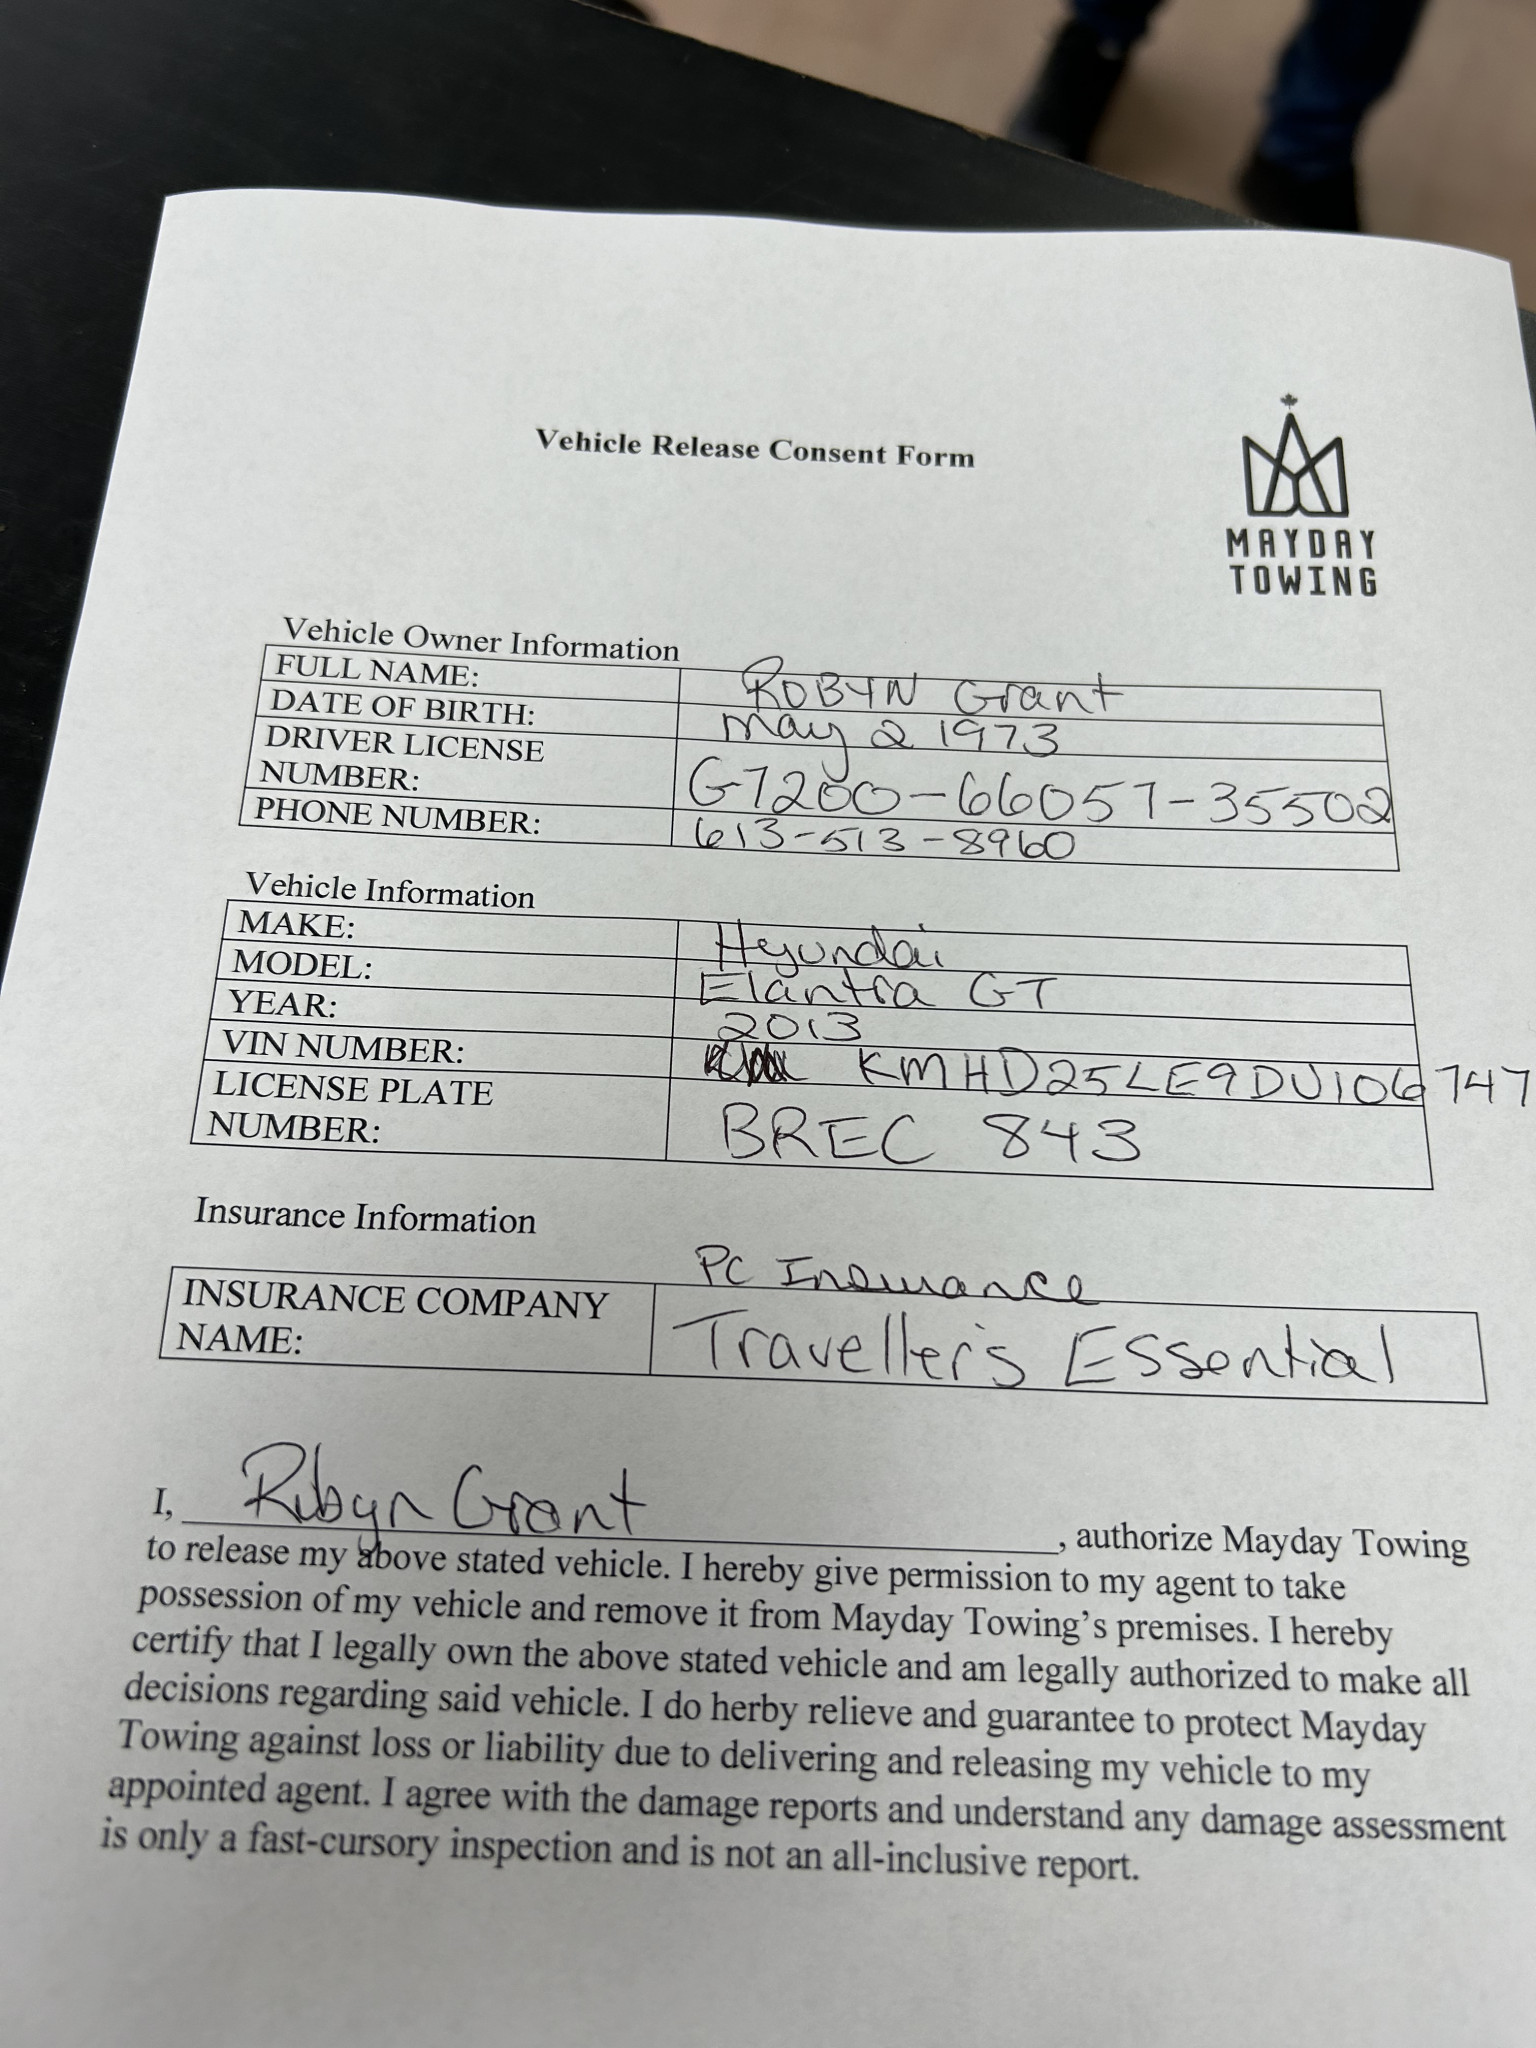 Vehicle Release Consent Form
MAYDAY
TOWING
Vehicle Owner Information
FULL NAME: ROBYN Grant
DATE OF BIRTH: may 2 1973
DRIVER LICENSE
NUMBER: G7200-66057-35502
PHONE NUMBER: 613-513-8960
Vehicle Information
MAKE: Hyundai
MODEL: Elantra GT
YEAR: 2013
VIN NUMBER: KMHD25LE9DU106747
LICENSE PLATE
NUMBER: BREC 843
Insurance Information
PC Insurance
INSURANCE COMPANY
NAME: Traveller's Essential
I, Robyn Grant, authorize Mayday Towing
to release my above stated vehicle. I hereby give permission to my agent to take
possession of my vehicle and remove it from Mayday Towing's premises. I hereby
certify that I legally own the above stated vehicle and am legally authorized to make all
decisions regarding said vehicle. I do herby relieve and guarantee to protect Mayday
Towing against loss or liability due to delivering and releasing my vehicle to my
appointed agent. I agree with the damage reports and understand any damage assessment
is only a fast-cursory inspection and is not an all-inclusive report.